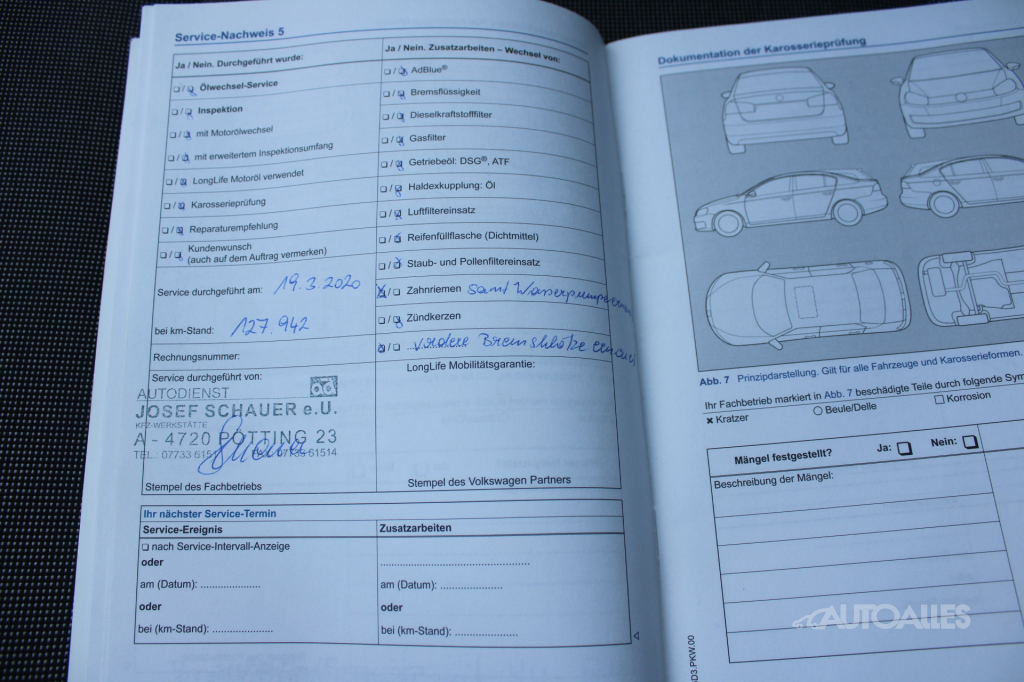 Service-Nachweis 5
Ja / Nein. Durchgeführt wurde:
❑ / ❑ Ölwechsel-Service
❑ / ❑ Inspektion
❑ / ❑ mit Motorölwechsel
❑ / ❑ mit erweitertem Inspektionsumfang
❑ / ❑ LongLife Motoröl verwendet
❑ / ❑ Karosserieprüfung
❑ / ❑ Reparaturempfehlung
❑ / ❑ Kundenwunsch
(auch auf dem Auftrag vermerken)
Service durchgeführt am: 19.3.2020
bei km-Stand: 127.942
Rechnungsnummer:
Service durchgeführt von:
AUTODIENST
JOSEF SCHAUER e.U.
KFZ-WERKSTÄTTE
A - 4720 PÖTTING 23
TEL.: 07733 07733 61514
Stempel des Fachbetriebs
Ja / Nein. Zusatzarbeiten – Wechsel von:
❑ / ❑ AdBlue®
❑ / ❑ Bremsflüssigkeit
❑ / ❑ Dieselkraftstofffilter
❑ / ❑ Gasfilter
❑ / ❑ Getriebeöl: DSG®, ATF
❑ / ❑ Haldexkupplung: Öl
❑ / ❑ Luftfiltereinsatz
❑ / ❑ Reifenfüllflasche (Dichtmittel)
❑ / ❑ Staub- und Pollenfiltereinsatz
❑ / ❑ Zahnriemen samt Wasserpumpe
❑ / ❑ Zündkerzen
❑ / ❑ ... vordere Bremsklötze
LongLife Mobilitätsgarantie:
Stempel des Volkswagen Partners
Ihr nächster Service-Termin
Service-Ereignis
❑ nach Service-Intervall-Anzeige
oder
am (Datum): .....................
oder
bei (km-Stand): .....................
Zusatzarbeiten
....................................................
am (Datum): .....................
oder
bei (km-Stand): .....................
Dokumentation der Karosserieprüfung
Abb. 7 Prinzipdarstellung. Gilt für alle Fahrzeuge und Karosserieformen.
Ihr Fachbetrieb markiert in Abb. 7 beschädigte Teile durch folgende Sym
✖ Kratzer ○ Beule/Delle □ Korrosion
Mängel festgestellt? Ja: ❑ Nein: ❑
Beschreibung der Mängel:
D3.PKW.00
AUTOALLES